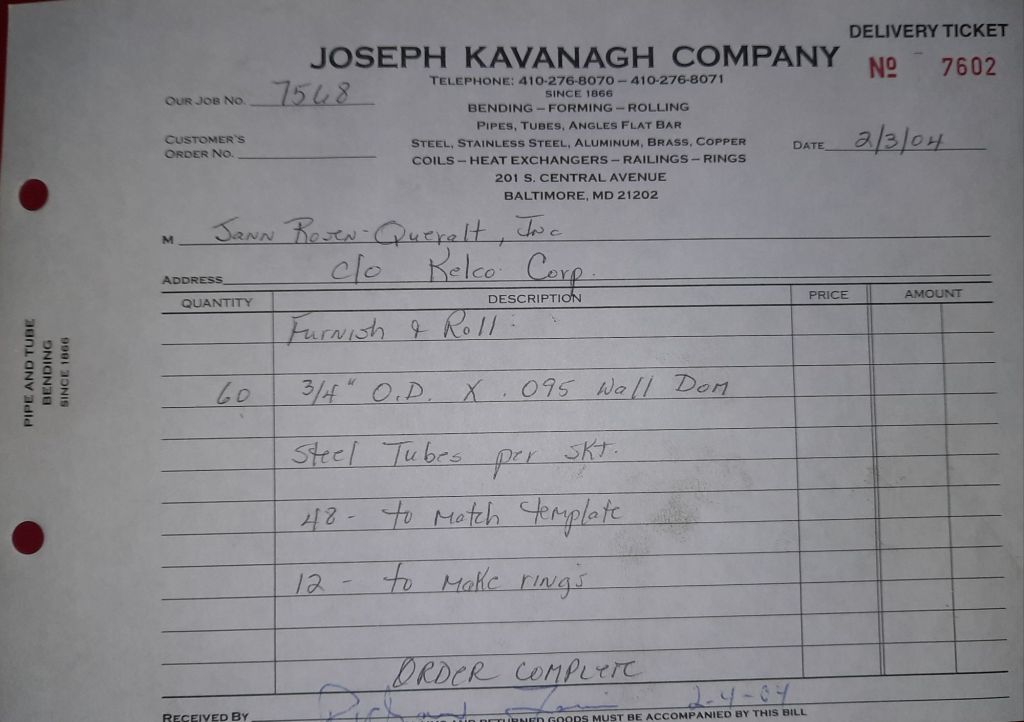 DELIVERY TICKET
JOSEPH KAVANAGH COMPANY
Nº 7602
TELEPHONE: 410-276-8070 – 410-276-8071
SINCE 1866
OUR JOB NO. 7568
BENDING – FORMING – ROLLING
PIPES, TUBES, ANGLES FLAT BAR
CUSTOMER'S
ORDER NO.
STEEL, STAINLESS STEEL, ALUMINUM, BRASS, COPPER
DATE 2/3/04
COILS – HEAT EXCHANGERS – RAILINGS – RINGS
201 S. CENTRAL AVENUE
BALTIMORE, MD 21202
M Jann Rosen-Queralt, Inc
ADDRESS c/o Kelco Corp.
QUANTITY DESCRIPTION PRICE AMOUNT
Furnish & Roll:
60 3/4" O.D. X .095 Wall Dom
Steel Tubes per SKT.
48 - to match template
12 - to make rings
ORDER COMPLETE
RECEIVED BY Richard 2-4-04
AND RETURNED GOODS MUST BE ACCOMPANIED BY THIS BILL
PIPE AND TUBE
BENDING
SINCE 1866